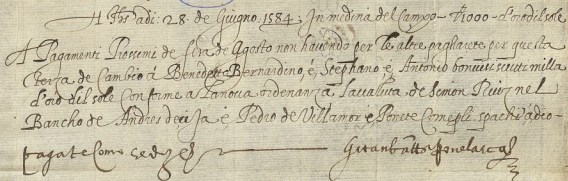 adi 28 de Giugno 1584 In medina del Campo
A Pagamenti Prossimi de fera de Agosto non havendo per le altre pagharete per questa
terza de Cambio a Benedetto Bernardino, é, Stephano é Antonio bonvisi scuti milla
d'oro dil sole Conforme a la nova ordenanza la valuta de Simon Ruiz nel
Bancho de Andres de é Pedro de Villamor é Ponete Come spaccio adio
pagate Como se dize